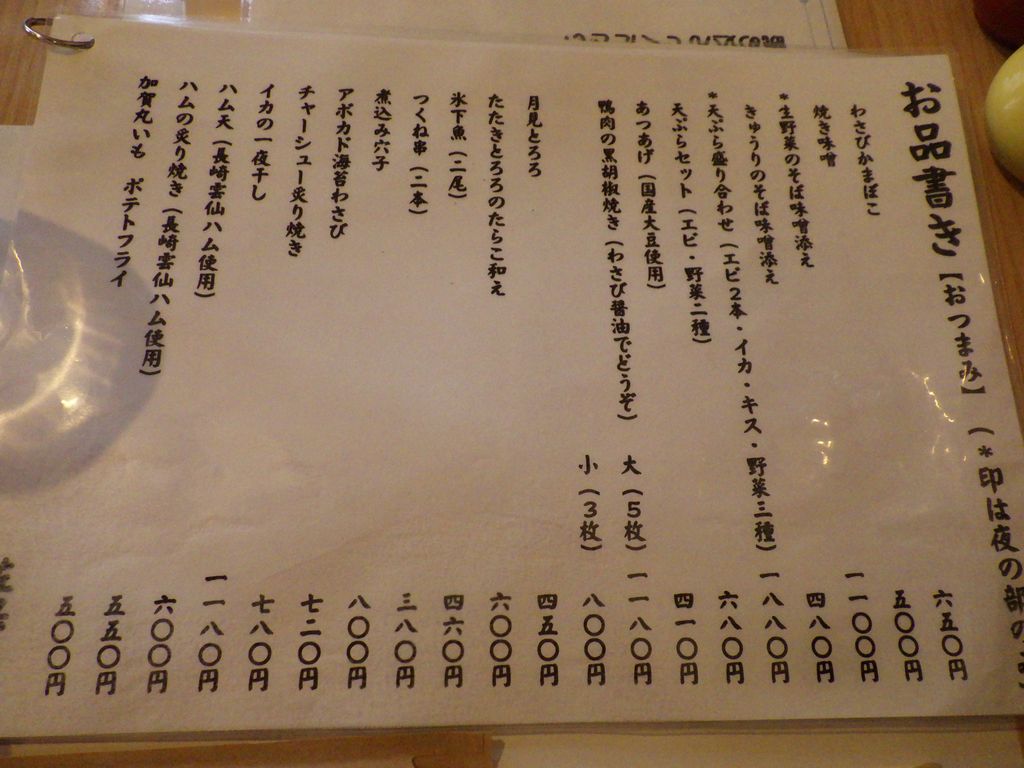 お品書き【おつまみ】 (*印は夜の部の
わさびかまぼこ 六五〇円
焼き味噌 五〇〇円
*生野菜のそば味噌添え 一一〇〇円
きゅうりのそば味噌添え 四八〇円
*天ぷら盛り合わせ(エビ2本・イカ・キス・野菜三種) 一八八〇円
天ぷらセット(エビ・野菜二種) 六八〇円
あつあげ(国産大豆使用) 四一〇円
鴨肉の黒胡椒焼き(わさび醤油でどうぞ) 大(5枚) 一一八〇円
小(3枚) 八〇〇円
月見とろろ 四五〇円
たたきとろろのたらこ和え 六〇〇円
氷下魚(二尾) 四六〇円
つくね串(二本) 三八〇円
煮込み穴子 八〇〇円
アボカド海苔わさび 七二〇円
チャーシュー炙り焼き 七八〇円
イカの一夜干し 一一八〇円
ハム天(長崎雲仙ハム使用) 六〇〇円
ハムの炙り焼き(長崎雲仙ハム使用) 五五〇円
加賀丸いも ポテトフライ 五〇〇円